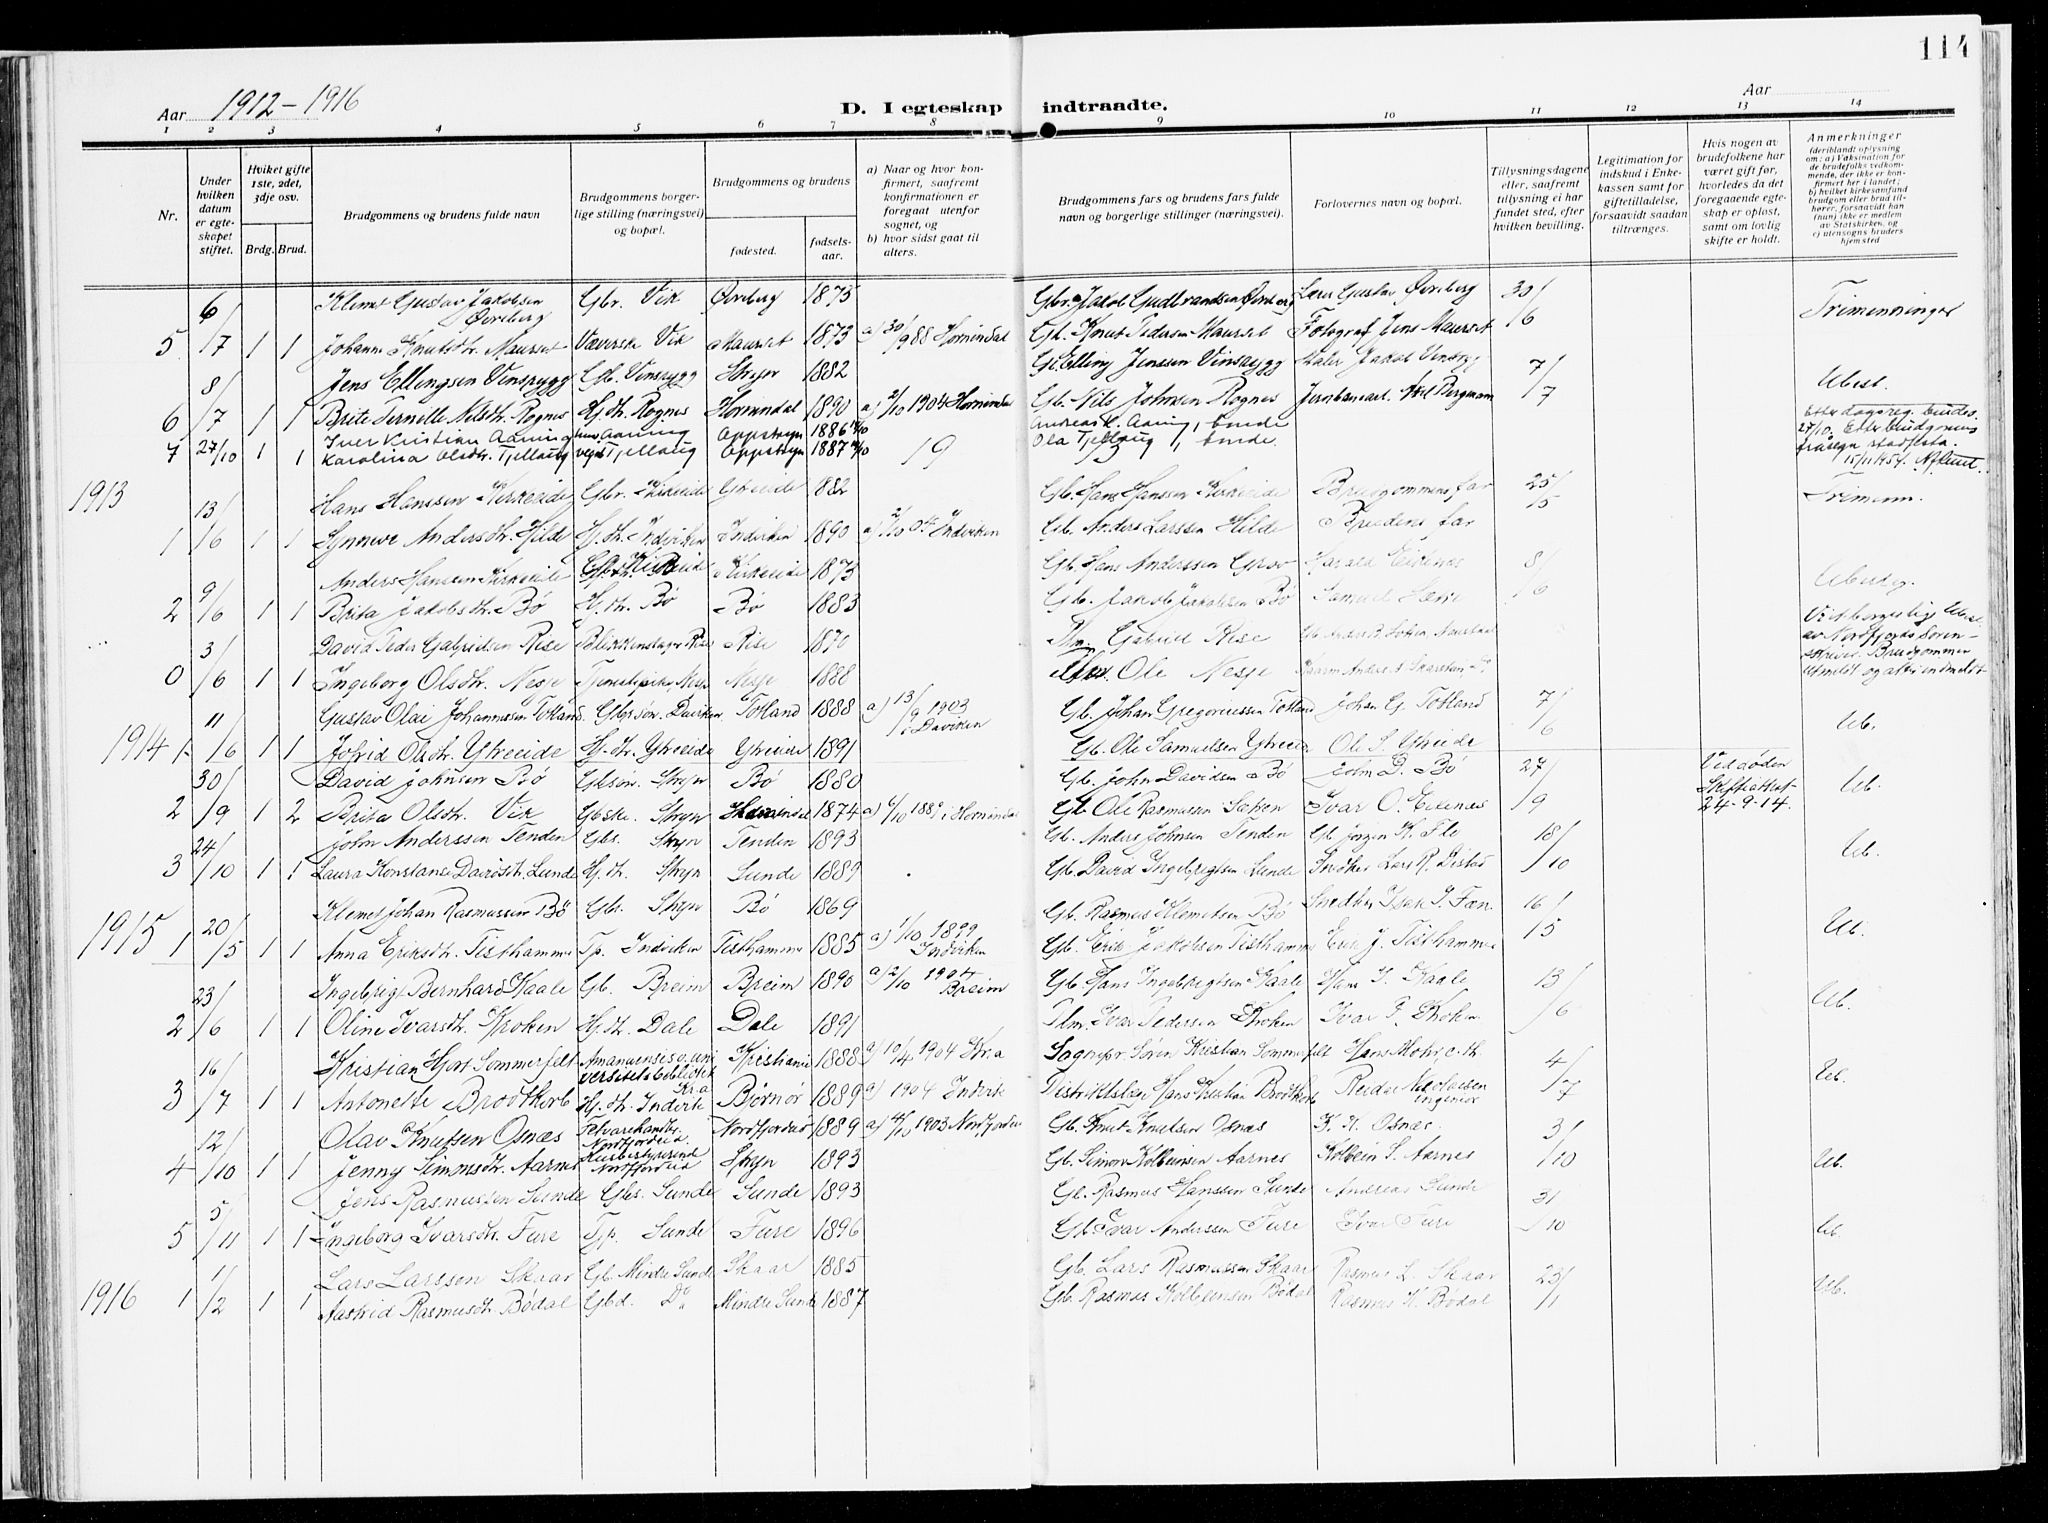 114
Aar 1912-1916
D. I egteskap indtraadte.
Aar
1 2 3 4 5 6 7 8 9 10 11 12 13 14
Nr.
Under hvilken datum er egteskapet stiftet.
Hvilket gifte 1ste, 2det, 3dje osv.
Brdg. Brud.
Brudgommens og brudens fulde navn
Brudgommens borgerlige stilling (næringsvei) og bopæl.
Brudgommens og brudens
fødested.
fødselsaar.
a) Naar og hvor konfirmert, saafremt konfirmationen er foregaat utenfor sognet, og
b) hvor sidst gaat til alters.
Brudgommens fars og brudens fars fulde navn og borgerlige stillinger (næringsvei).
Forlovernes navn og bopæl.
Tillysningsdagene eller, saafremt tillysning ei har fundet sted, efter hvilken bevilling.
Legitimation for indskud i Enkekassen samt for giftetilladelse, forsaavidt saadan tiltrænges.
Hvis nogen av brudefolkene har været gift før, hvorledes da det foregaaende egteskap er opløst, samt om lovlig skifte er holdt.
Anmerkninger (deriblandt oplysning om: a) Vaksination for de brudefolks vedkommende, der ikke er konfirmert her i landet; b) hvilket kirkesamfund brudgom eller brud tilhører, forsaavidt han (hun) ikke er medlem av Statskirken, og c) utensogns bruders hjemsted
6/ Klemet Gustav Jakobsen Øvreberg Gbr. Vik Øvreberg 1875 Gbr. Jakob Gudbrandsen Øvreberg Lars Gustav Øvreberg 30/ Trimenninger
5 /7 1 1 Johanne Knutsdtr. Maurset Væverske Vik Maurset 1873 a) 30/9 88 Hornindal Gb. Knut Pedersen Maurset Fotograf Jens Maurset /6
8/ Jens Ellingsen Vinsrygg Gb. Vinsrygg Stryn 1882 Gb. Elling Jenssen Vinsrygg Maler Jakob Vinsrygg 7/ Ubesl.
6 /7 1 1 Brite Pernille Nilsdtr. Rognes Hj. dtr. Rognes Hornindal 1890 a) 2/10 1904 Hornindal Gb. Nils Johnsen Rognes Jernbanearb. Axel Bergmann /7
7 27/10 1 1 Iver Kristian Aaning Aaning Oppstryn 1886 Andreas K. Aaning, bonde
Karolina Olsdtr. Tjellaug Tjellaug Oppstryn 1887 Ola Tjellaug, bonde
19
Etter dagsreg. bundne 27/10. Etter brudgomens fråsegn stadfesta. 15/11 1954.
1913 13/ Hans Hanssen Kirkeide Gbr. Kirkeide Ytreeide 1882 Gb. Hans Hanssen Kirkeide Brudgommens far 25/ Trimenn.
1 /6 1 1 Synneve Andersdtr. Hilde Hj. dtr. Indviken Indviken 1890 a) 2/10 04 Indviken Gb. Anders Larssen Hilde Brudens far /5
9/ Anders Hansen Kirkeide Kirkeide Kirkeide 1873 Gb. Hans Anderssen Harald Eikenæs 8/ Ubeslg.
2 /6 1 1 Brita Jakobsdtr. Bø Hj. dtr. Bø Bø 1883 Gb. Jakob Jakobsen Bø Samuel /6
3/ David Peder Gabrielsen Rise Blikkenslager Rise Rise 1870 Plm. Gabriel Rise
0 /6 1 1 Ingeborg Olsdtr. Nesje Tjenestepike, Nesje Nesje 1888 Plm. Ole Nesje
Viet borgerlig av Nordfjords Sorenskriver. Brudgommen utmeldt og atter indmeldt
11/ Gustav Olai Johannessen Totland Gbrsøn. Daviken Totland 1888 a) 13/9 1903 i Daviken Gb. Johan Gregoriussen Totland Johan G. Totland 7/ Ub.
1914 1 /6 1 1 Jofrid Olsdtr. Ytreeide Hj. dtr. Ytreeide Ytreeide 1891 Gb. Ole Samuelsen Ytreeide Ole S. Ytreeide /6
30/ David Johnsen Bø Gbsøn. Stryn Bø 1880 Gb. John Davidsen Bø John D. Bø 27/ Ved døden Skifteattest 24-9-14. Ub.
2 /9 1 2 Brita Olsdtr. Vik Gbske. Stryn Hornindal 1874 a) 6/10 1889 i Hornindal Gb. Ole Rasmussen Sætren Ivar O. Eidenæs /9
24/ John Anderssen Tenden Gbs. Stryn Tenden 1893 Gb. Anders Johnsen Tenden Gb. Jørgen K. Flo 18/ Ub.
3 /10 1 1 Laura Konstanse Davidsdtr. Sunde Hj. dtr. Stryn Sunde 1889 Gb. David Ingebrigtsen Sunde Snedker Lars R. Distad /10
20/ Klemet Johan Rasmussen Bø Gbs. Stryn Bø 1869 Gb. Rasmus Klemetsen Bø Snedker Isak P. 16/ Ub.
1915 1 /5 1 1 Anna Eriksdtr. Tisthammer Tp. Indviken Tisthammer 1885 a) 1/10 1899 Indviken Gb. Erik Jakobsen Tisthammer Erik J. Tisthammer /5
23/ Ingebrigt Bernhard Kaale Gb. Breim Breim 1890 a) 2/10 1904 Breim Gb. Hans Ingebrigtsen Kaale Hans I. Kaale 13/ Ub.
2 /6 1 1 Oline Ivarsdtr. Kroken Hj. dtr. Dale Dale 1891 Plm. Ivar Pedersen Kroken Ivar P. Kroken /6
16/ Kristian Hjort Sommerfelt Amanuensis v. universitetsbibliotek Kr.a Kristiania 1888 a) 10/4 1904 Kr.a Sognepr. Sören Kristian Sommerfelt Hans Mohr, c. th. 4/ Ub.
3 /7 1 1 Antonette Brodtkorb Hj. dtr. Indvik Bjørnør 1889 a) 1904 Indvik Distriktslæge Hans Kristian Brodtkorb Reidar Nicolaisen ingeniør /7
12/ Olav Knutsen Osnæs Nordfjordeid Nordfjordeid 1889 a) 4/10 1903 Nordfjordeid Gb. Knut Knutsen Osnæs K. K. Osnæs 3/ Ub.
4 /10 1 1 Jenny Simonsdtr. Aarnes Husbestyrerinde Nordfjordeid Stryn 1893 Gb. Simon Kolbeinsen Aarnes Kolbein S. Aarnes /10
5/ Jens Rasmussen Sunde Gbs. Sunde Sunde 1893 Gb. Rasmus Hanssen Sunde Andreas Sunde 31 Ub.
5 /11 1 1 Ingeborg Ivarsdtr. Fure Tjp. Sunde Fure 1896 Gb. Ivar Anderssen Fure Ivar Fure /10
1/ Lars Larsson Skaar Gb. Mindre Sunde Skaar 1885 Gb. Lars Rasmussen Skaar Rasmus L. Skaar 23/ Ub.
1916 1 /2 1 1 Aastrid Rasmusdtr. Bødal Gbd. Do Mindre Sunde 1887 Gb. Rasmus Kolbeinsen Bødal Rasmus K. Bødal /1